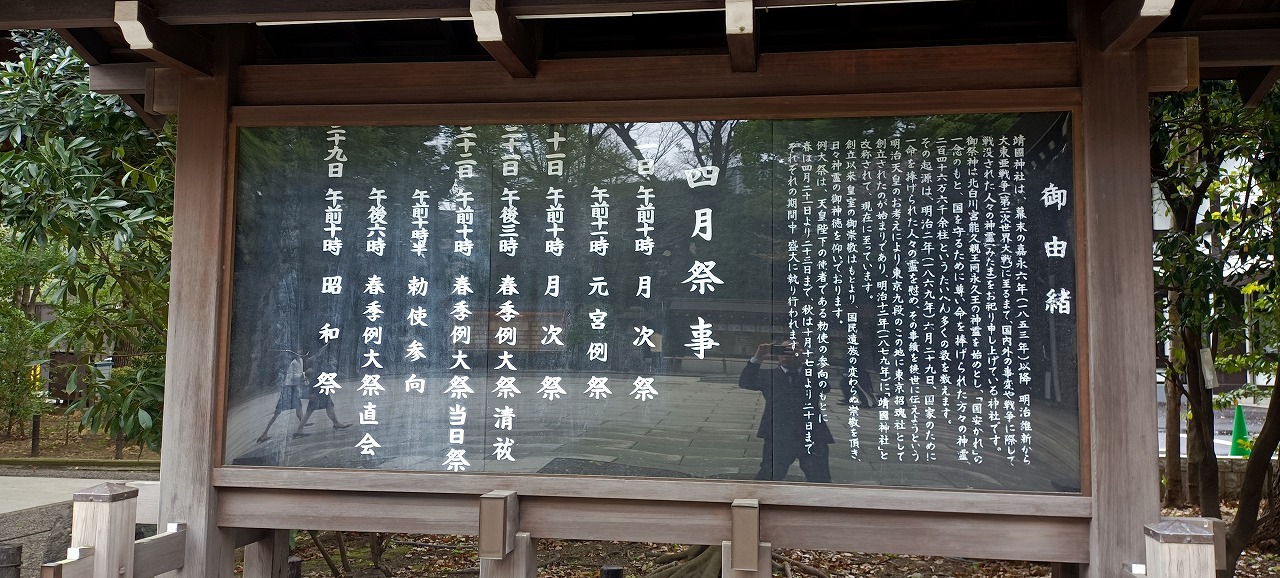 御由緒
靖國神社は、幕末の嘉永六年(一八五三年)以降、明治維新から
大東亜戦争(第二次世界大戦)に至るまで、国内外の事変や戦争に際して
戦没された人々の神霊(みたま)をお祀り申し上げている神社です。
御祭神は北白川宮能久親王同永久王の神霊を始めとし、「国安かれ」の
一念のもと、国を守るために尊い命を捧げられた方々の神霊、
二百四十六万六千余柱というたいへん多くの数を数えます。
その起源は、明治二年(一八六九年)六月二十九日、国家のために
一命を捧げられた人々の霊を慰め、その事績を後世に伝えようという
明治天皇のお考えにより東京九段のこの地に東京招魂社として
創立されたのが始まりであり、明治十二年(一八七九年)に「靖國神社」と
改称されて、現在に至っています。
創立以来、皇室の御崇敬はもとより、国民遺族の変わらぬ崇敬を頂き、
日々神霊の御神徳を仰いでおります。
例大祭は、天皇陛下の使者である勅使の参向のもとに
春は四月二十一日より二十二日まで、秋は十月十七日より二十日まで
それぞれの期間中盛大に執り行われます。
四月祭事
日 午前十時 月次祭
午前十一時 元宮例祭
十一日 午前十時 月次祭
二十一日 午後三時 春季例大祭清祓
二十二日 午前十時 春季例大祭当日祭
午前十時半 勅使参向
午後六時 春季例大祭直会
二十九日 午前十時 昭和祭